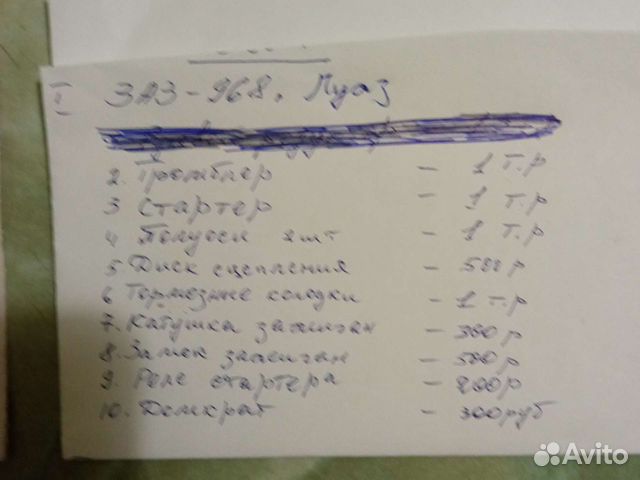 I ЗАЗ-968. Луаз
2. Трамблер - 1 т.р
3 Стартер - 1 т.р
4 Полуоси 2 шт - 1 т.р
5 Диск сцепления - 500 р
6 Тормозные колодки - 1 т.р
7. Катушка зажиган - 300 р
8. Замок зажиган - 500 р
9. Реле стартера - 200р
10. Домкрат - 300 руб
Avito